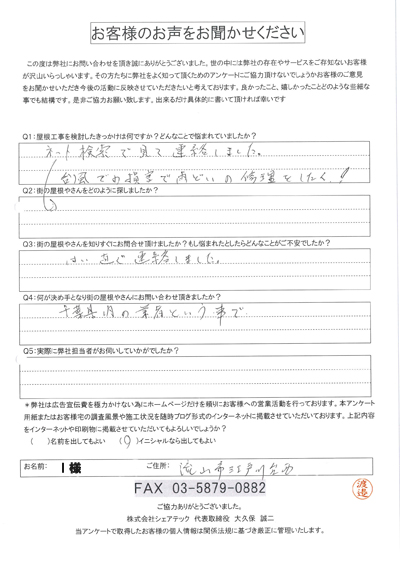 お客様のお声をお聞かせください
この度は弊社にお問い合わせを頂き誠にありがとうございました。世の中には弊社の存在やサービスをご存知ないお客様
が沢山いらっしゃいます。その方たちに弊社をよく知って頂くためのアンケートにご協力頂けないでしょうかお客様のご意見
をお聞かせいただき今後の活動に反映させていただきたいと考えております。良かったこと、嬉しかったことどのような些細な
事でも結構です。是非ご協力お願い致します。出来るだけ具体的に書いて頂ければ幸いです
Q1:屋根工事を検討したきっかけは何ですか?どんなことで悩まれていましたか?
ネット検索で見て連絡しました。
台風での損害で雨どいの修理をしたく!
Q2:街の屋根やさんをどのように探しましたか?
Q3:街の屋根やさんを知りすぐにお問合せ頂けましたか?もし悩まれたとしたらどんなことがご不安でしたか?
はい 直ぐ連絡しました。
Q4:何が決め手となり街の屋根やさんにお問い合わせ頂きましたか?
千葉県内の業者という事で
Q5:実際に弊社担当者がお伺いしていかがでしたか?
*弊社は広告宣伝費を極力かけない為にホームページだけを頼りにお客様への営業活動を行っております。本アンケート
用紙またはお客様宅の調査風景や施工状況を随時ブログ形式のインターネットに掲載させていただいております。上記内容
をインターネットや印刷物に掲載させていただいてもよろしいでしょうか?
( )名前を出してもよい (○)イニシャルなら出してもよい
お名前: I 様 ご住所: 流山市江戸川台西
FAX 03-5879-0882
渡邉
ご協力ありがとうございました。
株式会社シェアテック 代表取締役 大久保 誠二
当アンケートで取得したお客様の個人情報は関係法規に基づき厳正に管理いたします。